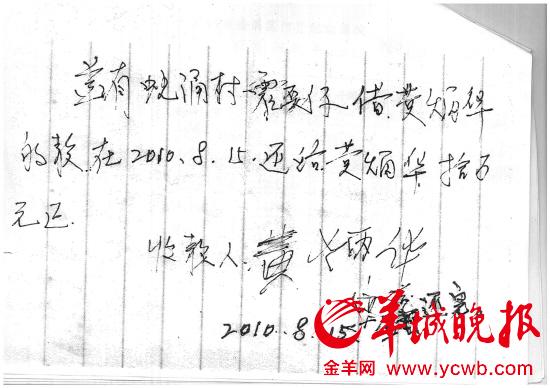 兹有蚬涌村借黄炳华
的款.在2010.8.15.还给黄炳华拾万
元正.
收款人:黄炳华
还完
2010.8.15.
羊城晚报
金羊网 www.ycwb.com